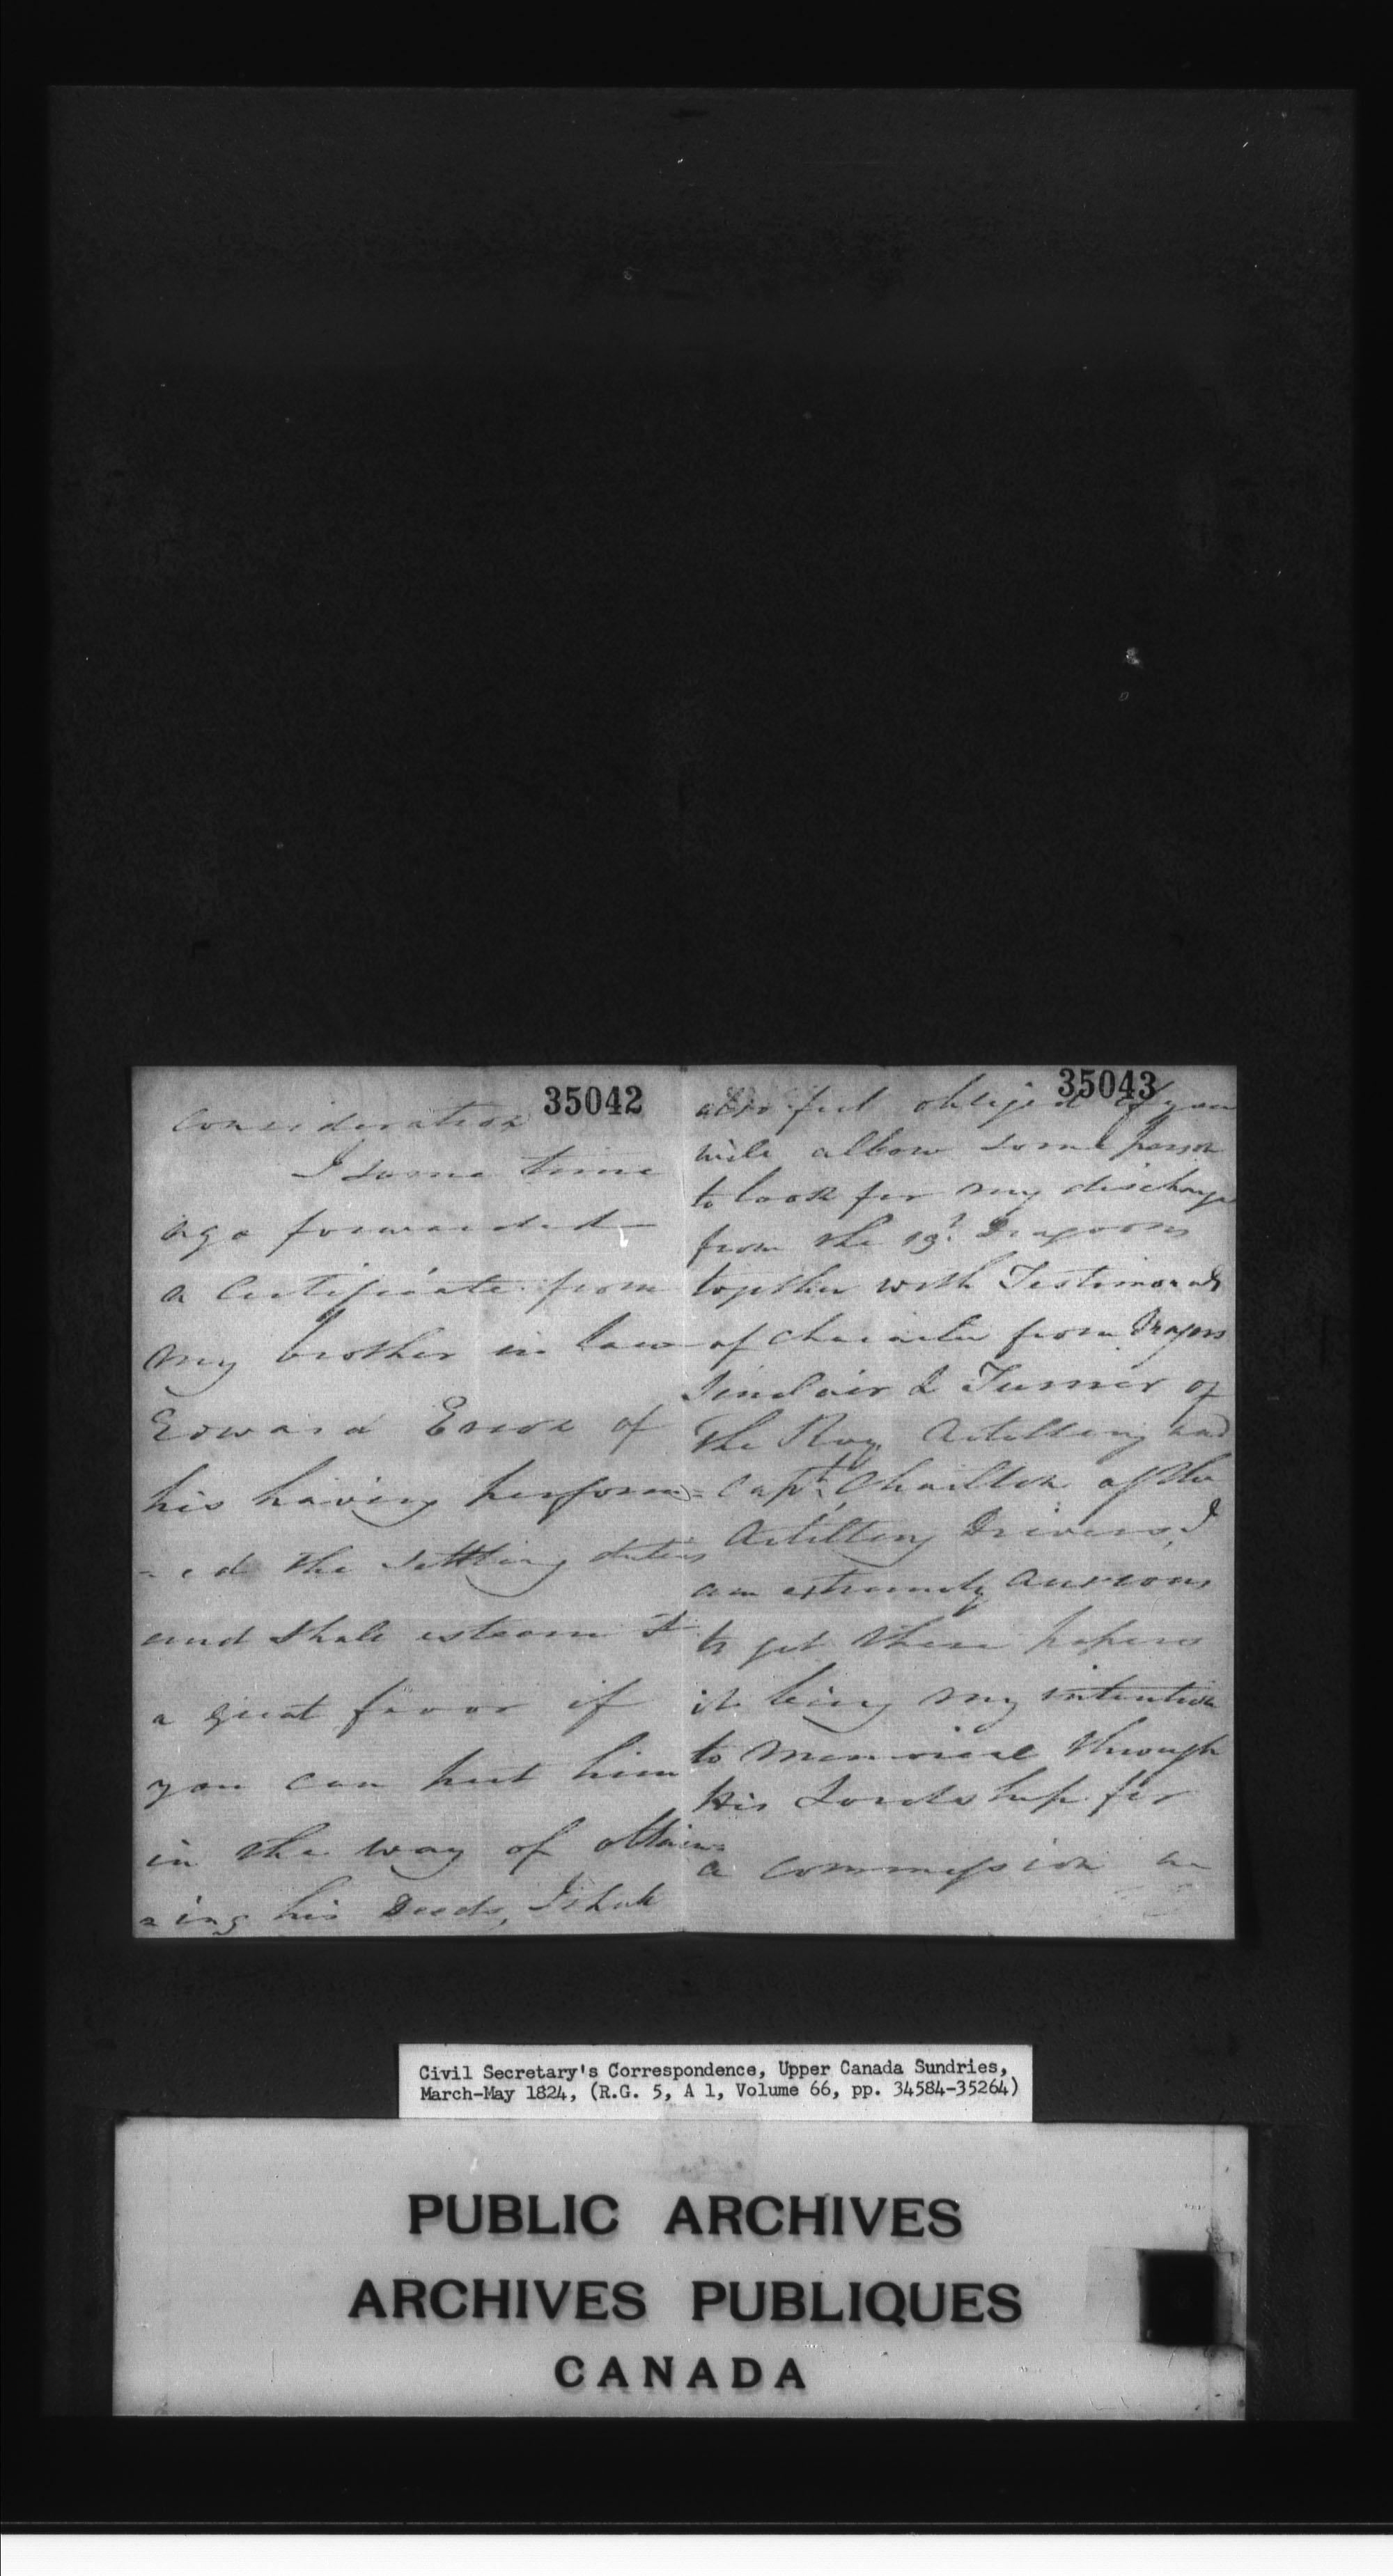 35042
consideration
I some time
ago forwarded
a Certificate from
my brother in law
Edward of
his having perform=
=ed the settling duties
and shall esteem it
a great favor if
you can put him
in the way of obtain=
=ing his Deeds, I shall
35043
also feel obliged if you
will allow some person
to look for my discharge
from the 19th Dragoons
together with Testimonials
of character from Majors
Sinclair & Turner of
the Roy. Artillery and
Capt. Charlton of the
Artillery Drivers, I
am extremely anxious
to get these papers
it being my intention
to memorial through
His Lordship for
a commission in
Civil Secretary's Correspondence, Upper Canada Sundries,
March-May 1824, (R.G. 5, A 1, Volume 66, pp. 34584-35264)
PUBLIC ARCHIVES
ARCHIVES PUBLIQUES
CANADA